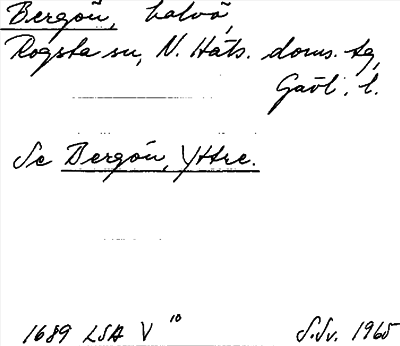 Bergön, halvö,
Rogsta sn, N. Häls. doms. tg,
Gävl. l.
Se Bergön, Yttre.
1689 LSA V 10 S.Sv. 1965